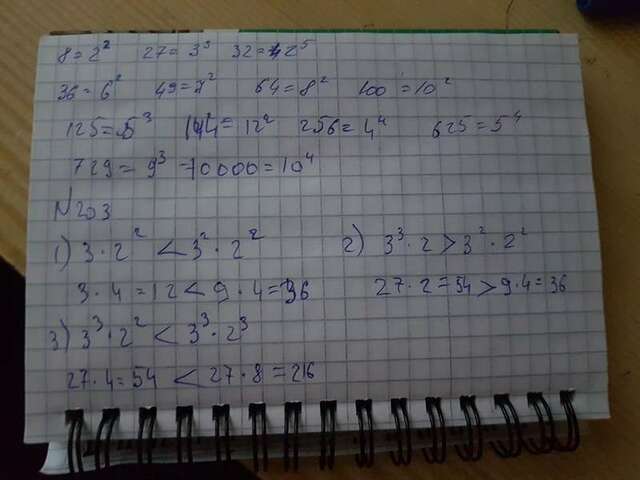 8=2² 27=3³ 32=2⁵
36=6² 49=7² 64=8² 100=10²
125=5³ 144=12² 256=4⁴ 625=5⁴
729=9³ 10000=10⁴
N203
1) 3·2² < 3²·2² 2) 3³·2 > 3²·2²
3·4=12 < 9·4=36 27·2=54 > 9·4=36
3) 3³·2² < 3³·2³
27·4=54 < 27·8=216